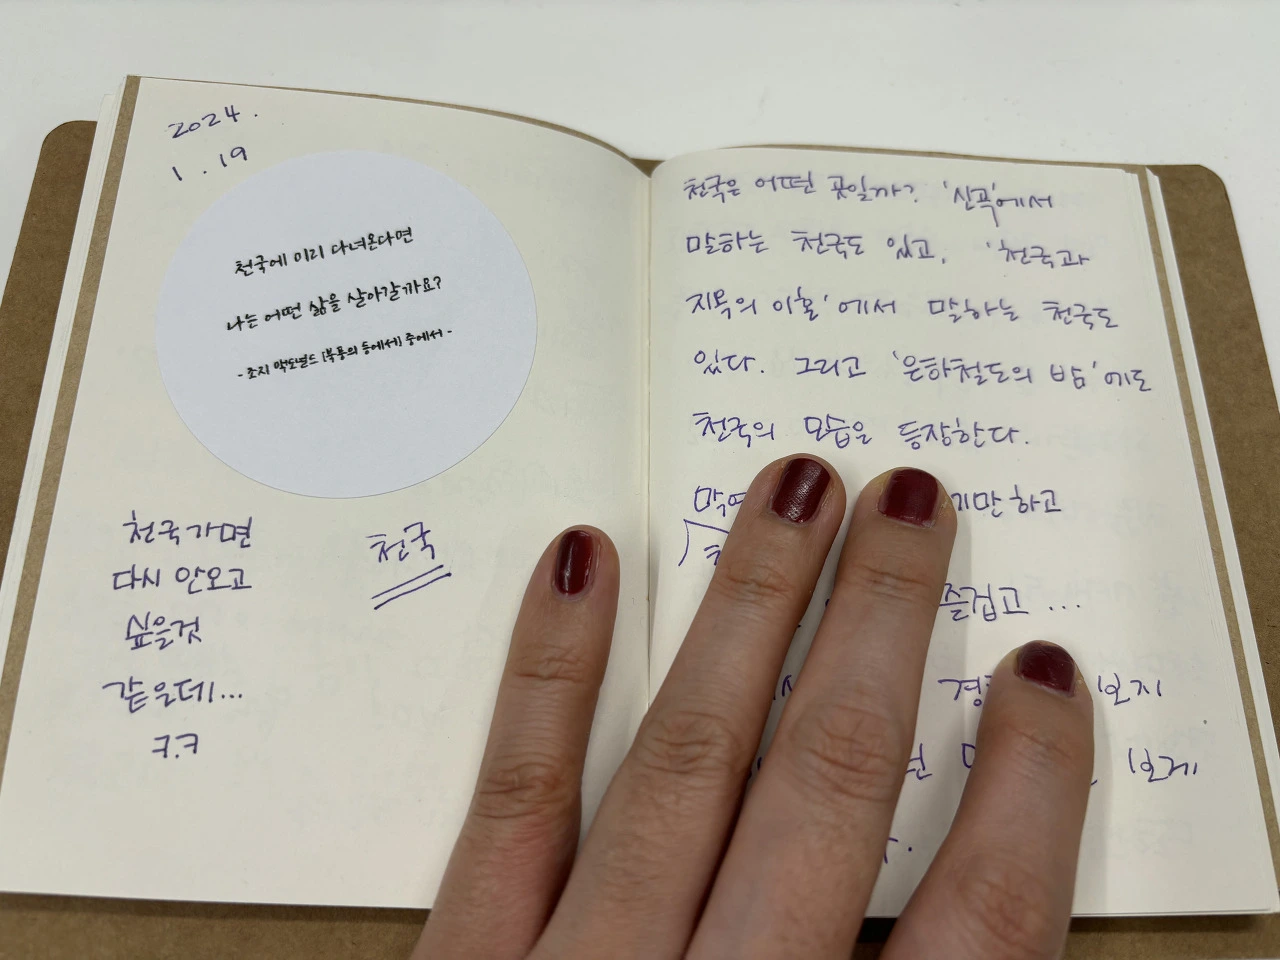 2024.
1.19
천국에 미리 다녀온다면
나는 어떤 삶을 살아갈까요?
- 조지 막도널드 [북풍의 등에서] 중에서 -
천국가면
다시 안오고
싶을것
같은데...
ㅋ.ㅋ
천국
천국은 어떤 곳일까? '신곡'에서
말하는 천국도 있고, '천국과
지옥의 이혼'에서 말하는 천국도
있다. 그리고 '은하철도의 밤'에도
천국의 모습은 등장한다.
지만 하고
즐겁고 ...
보지
보게